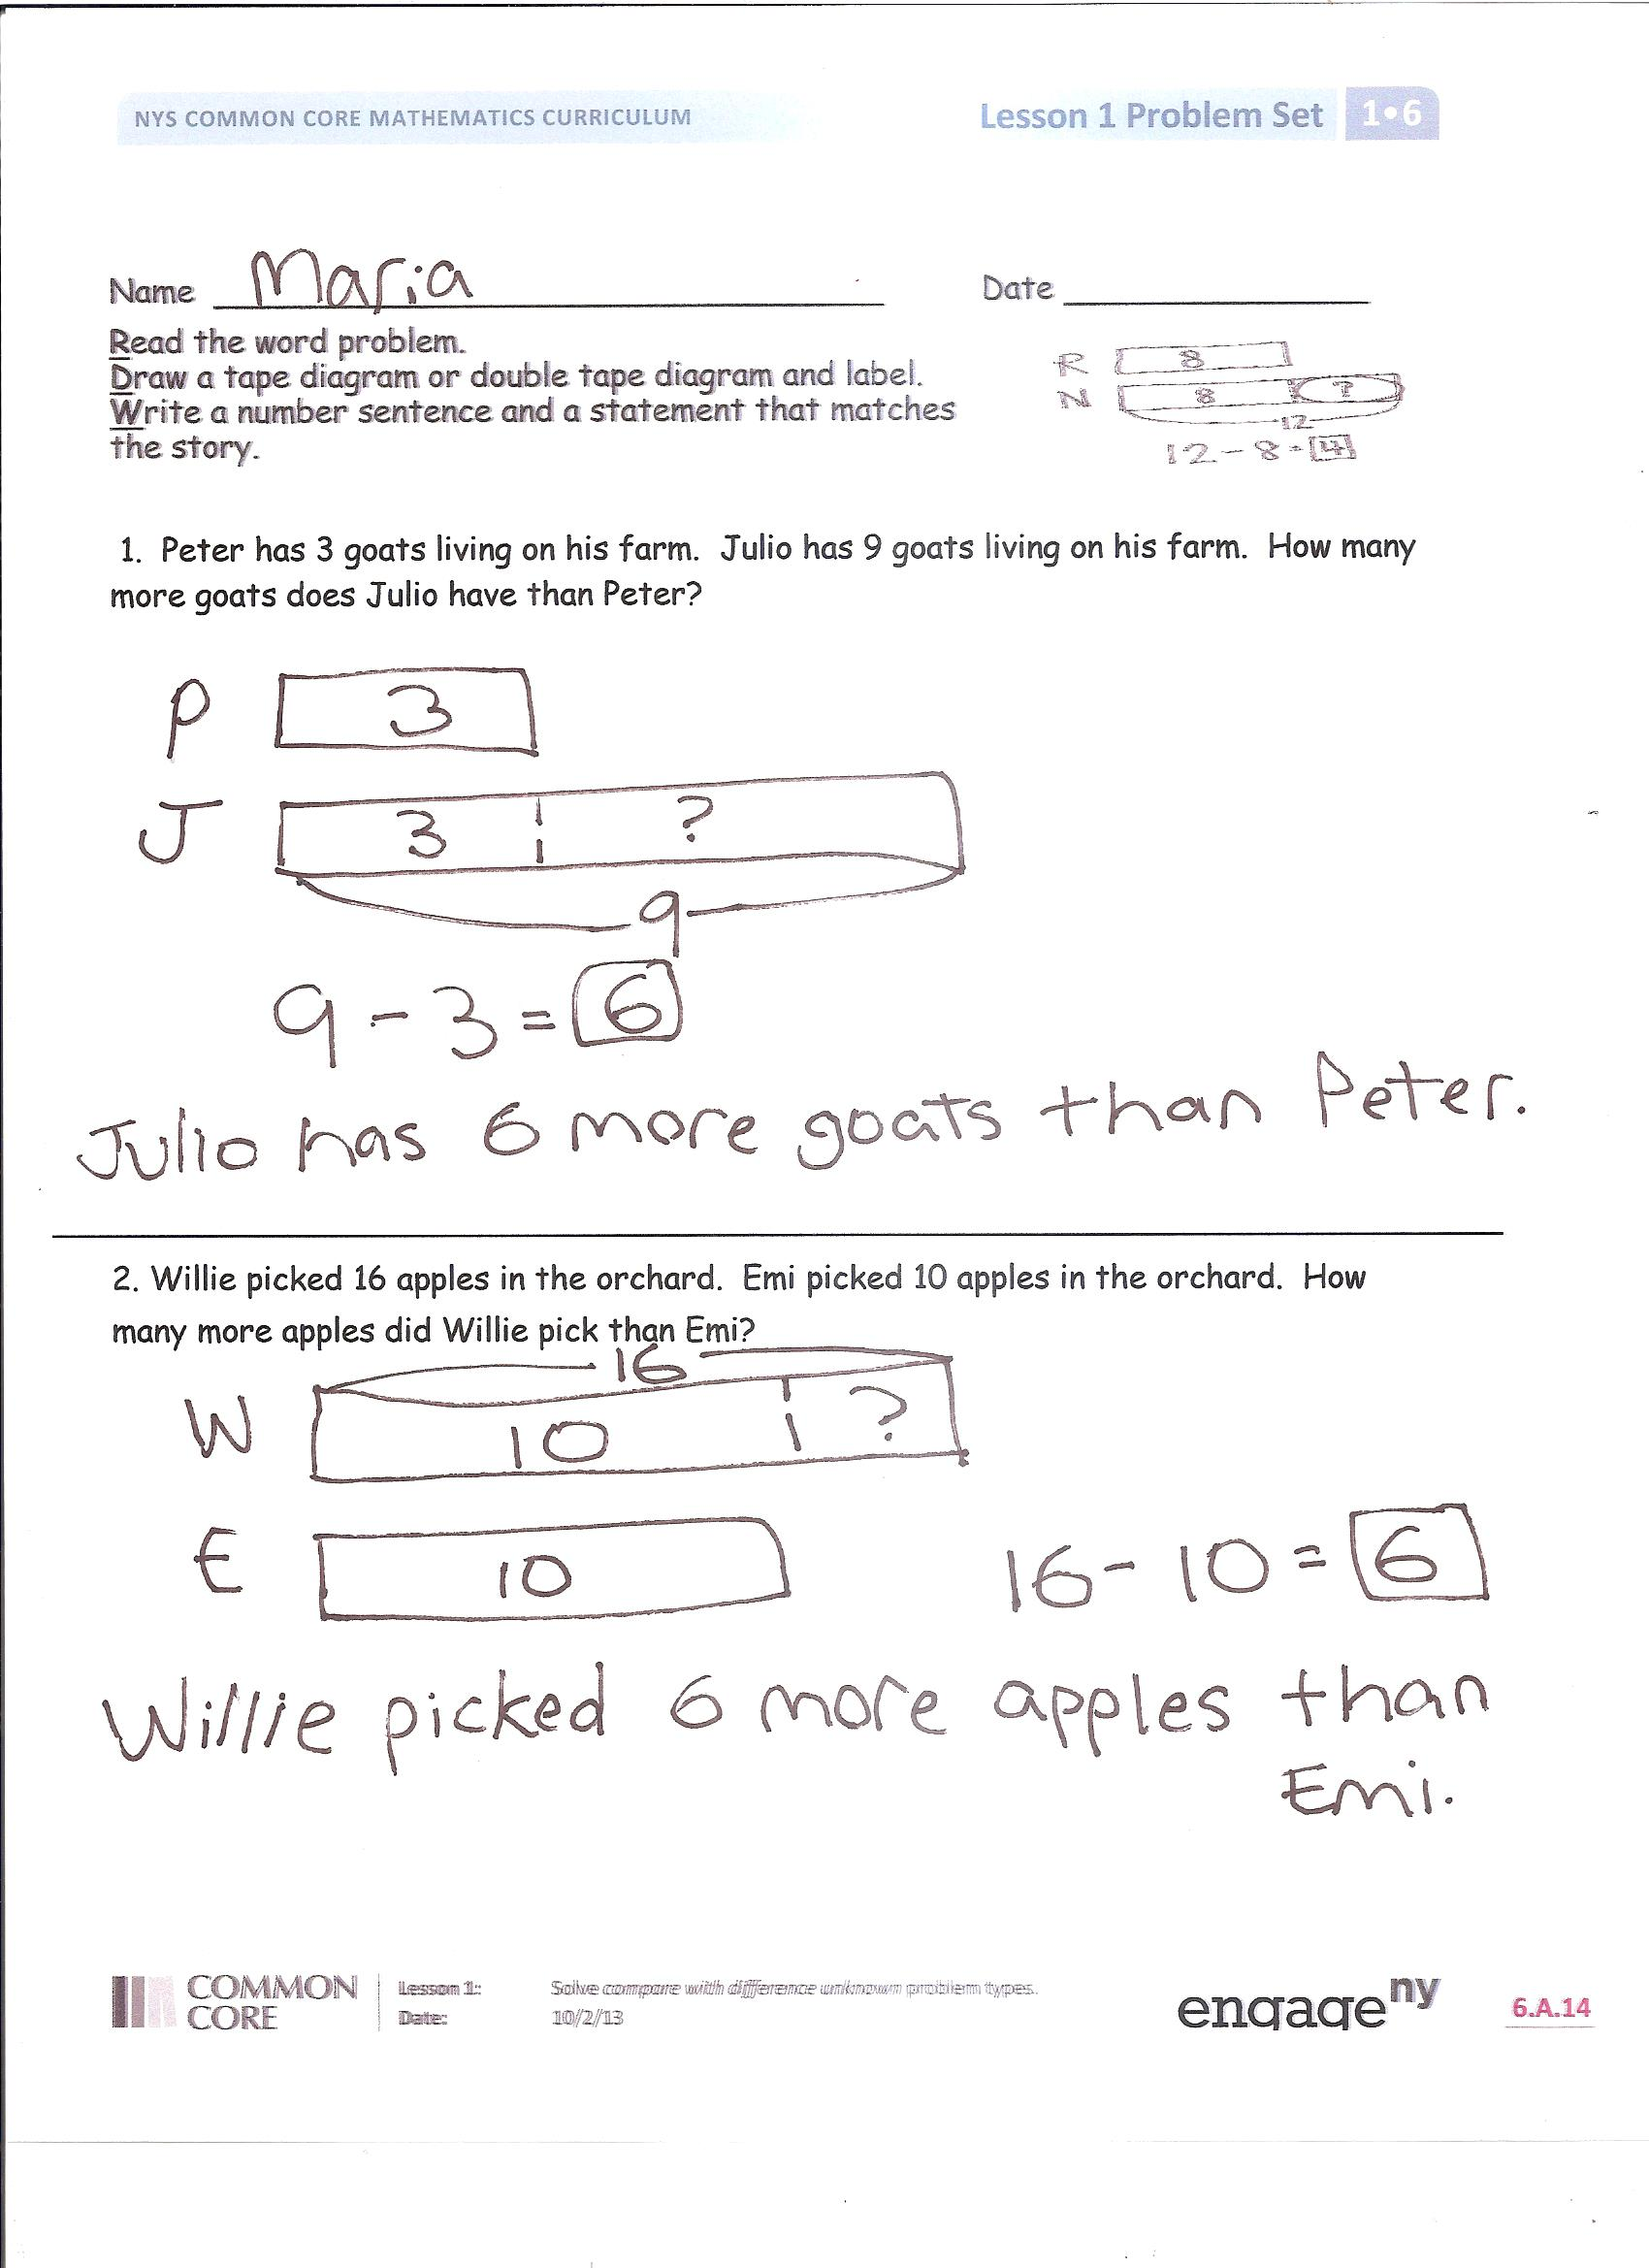 NYS COMMON CORE MATHEMATICS CURRICULUM
Lesson 1 Problem Set 1•6
Name Maria
Date
Read the word problem.
Draw a tape diagram or double tape diagram and label.
Write a number sentence and a statement that matches
the story.
R 8
N 8 ?
12
12 - 8 = 4
1. Peter has 3 goats living on his farm. Julio has 9 goats living on his farm. How many
more goats does Julio have than Peter?
P 3
J 3 ?
9
9 - 3 = 6
Julio has 6 more goats than Peter.
2. Willie picked 16 apples in the orchard. Emi picked 10 apples in the orchard. How
many more apples did Willie pick than Emi?
16
W 10 ?
E 10
16 - 10 = 6
Willie picked 6 more apples than
Emi.
COMMON
CORE
Lesson 1: Solve compare with difference unknown problem types.
Date: 10/2/13
engage ny
6.A.14